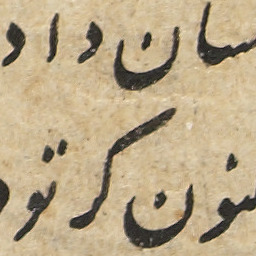 سان داد
کنون کر تو